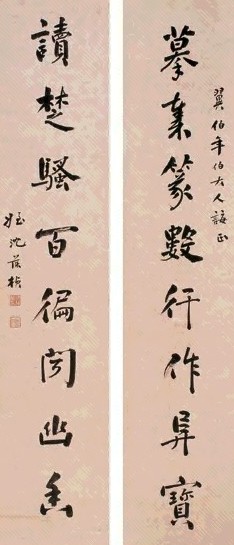 翼伯年伯大人正
摹秦篆數行作異寶
讀楚騷百徧聞幽香
姪沈葆楨